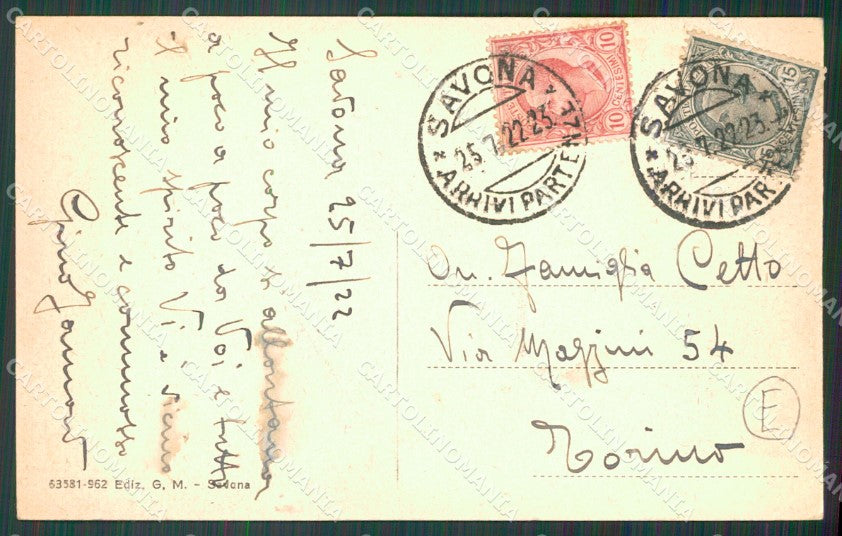 Savona 25/7/22
Il mio corpo si allontana
a poco a poco da Voi e tutto
il mio spirito Vi è vicino
riconoscente e commosso
Gino
10
CENTESIMI
10
15
15
* SAVONA *
25.7.22·23
ARRIVI PARTENZE
* SAVONA *
25.7.22·23
ARRIVI PARTENZE
On. Famiglia Cetto
Via Mazzini 54
Torino
E
63581-962 Ediz. G. M. - Savona
CARTOLINOMANIA